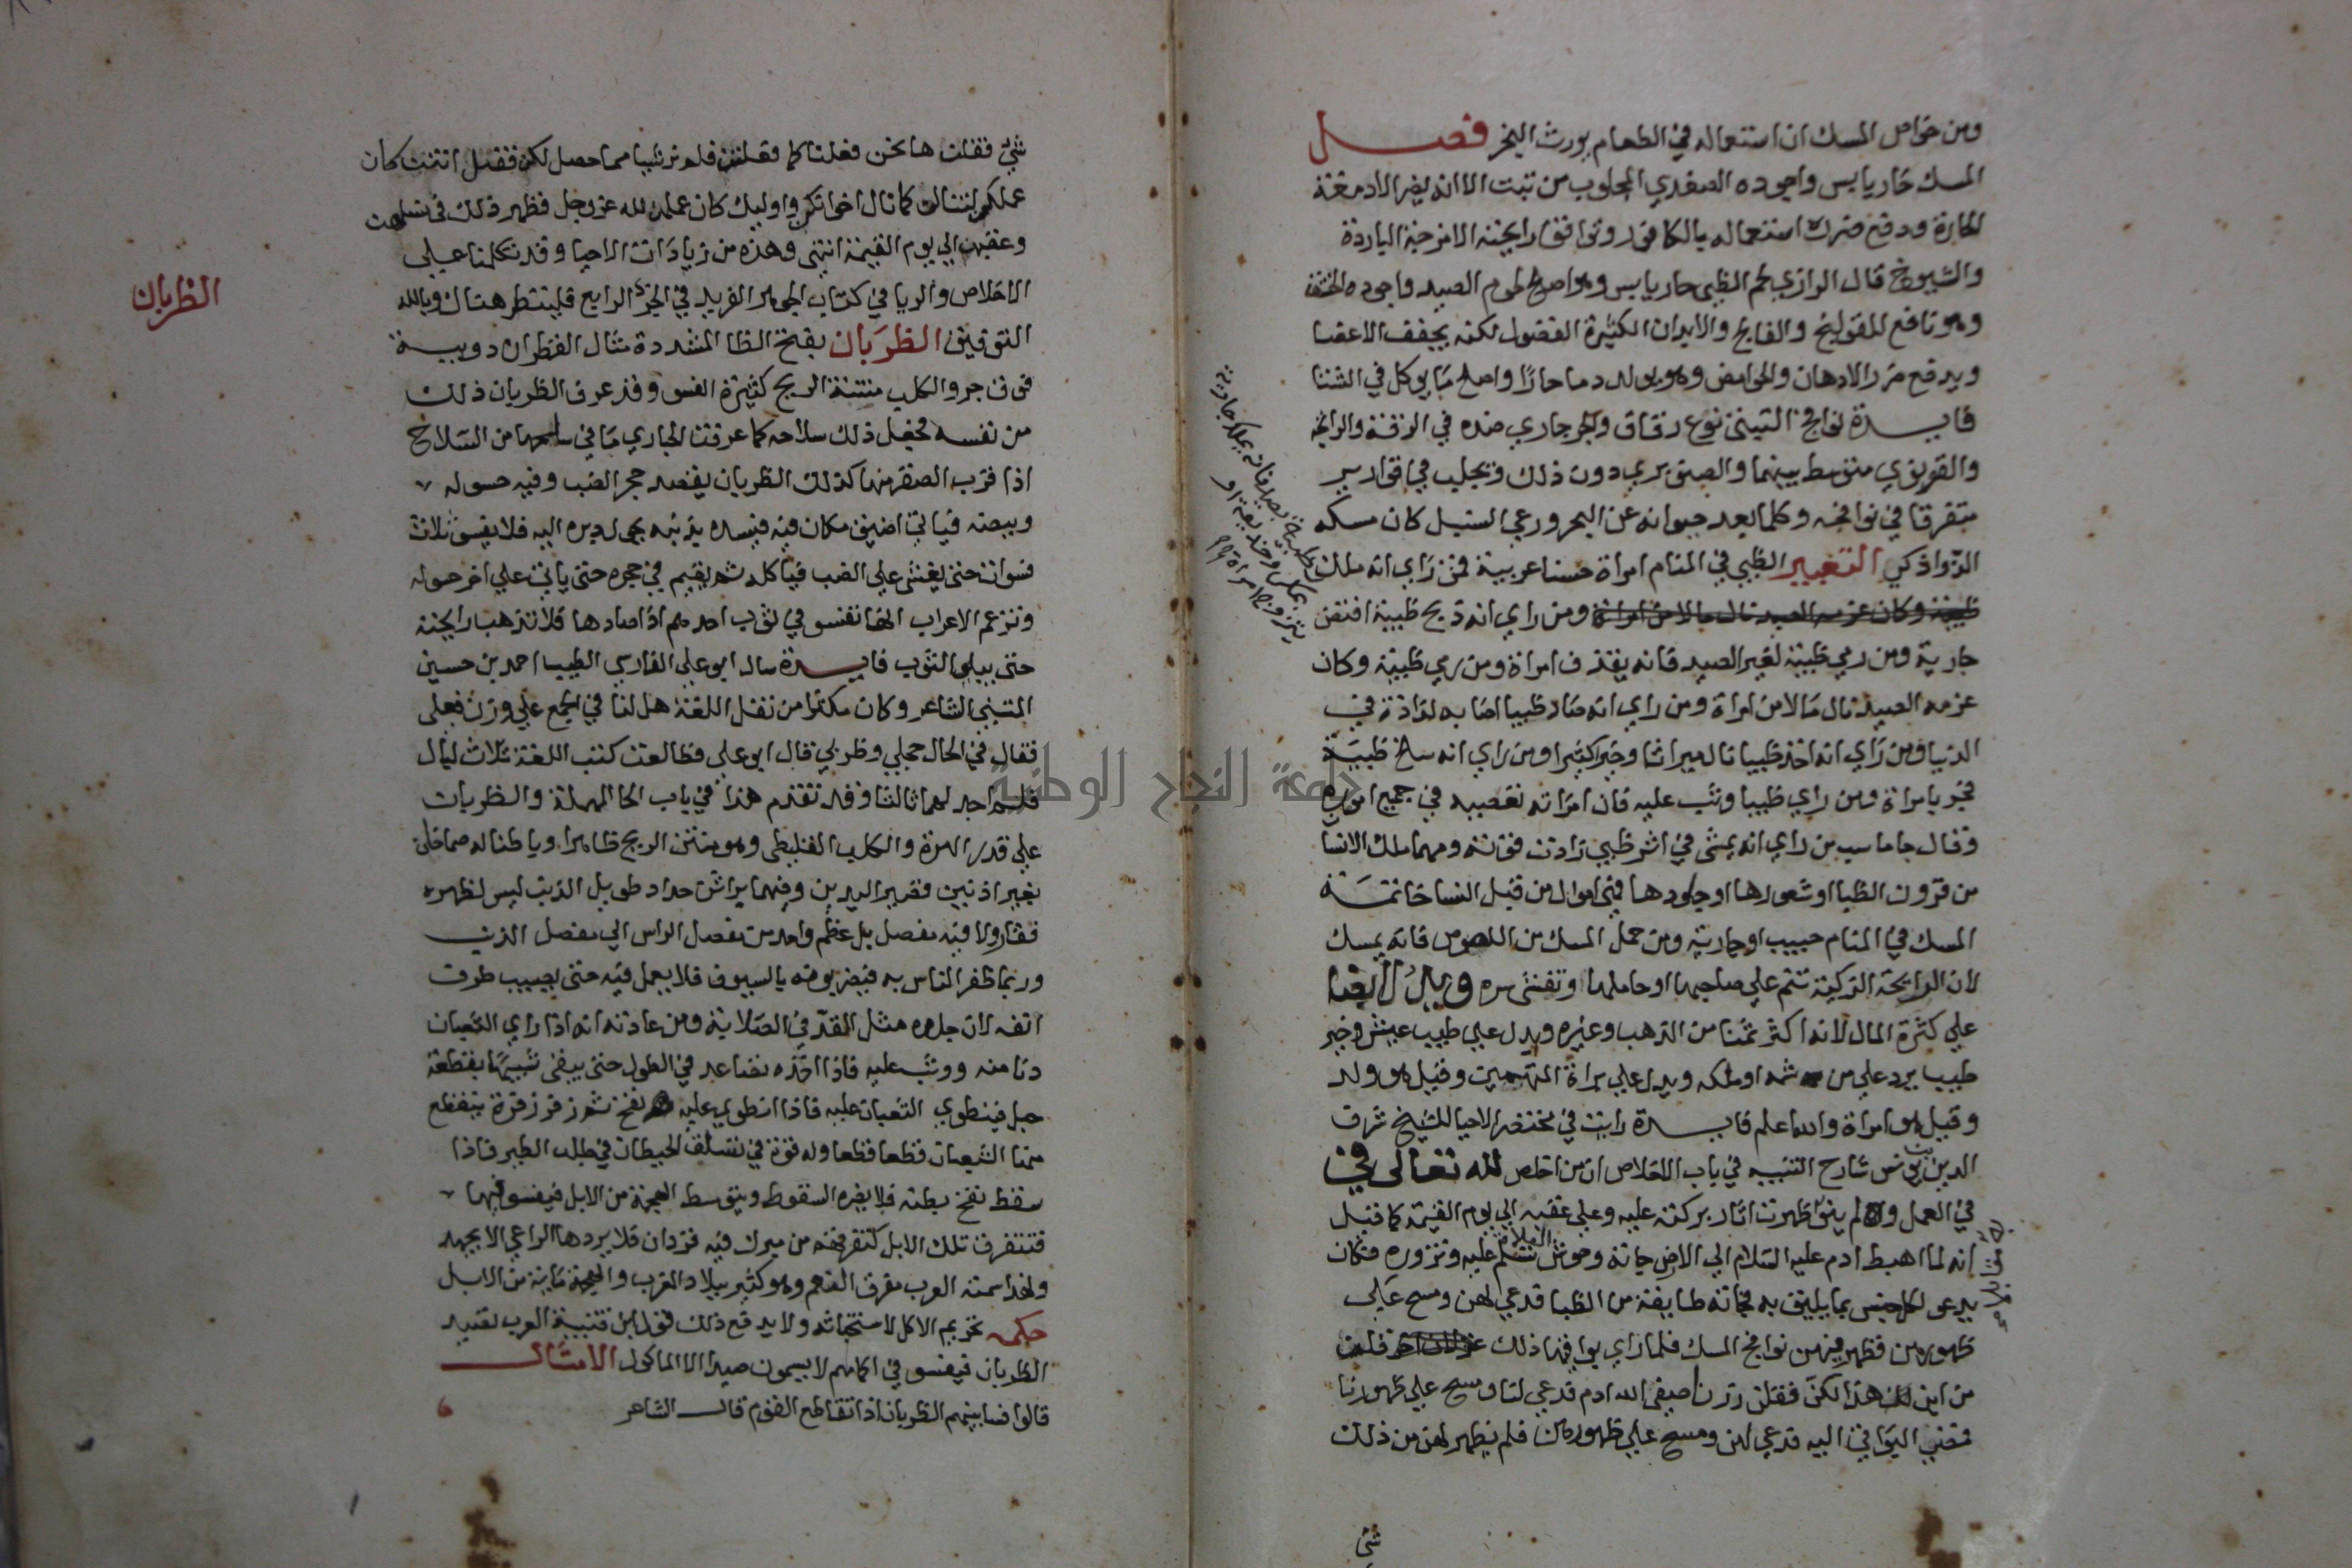 ومن خواص المسك ان استعماله في الطعام يورث البخر فصل
المسك حار يابس واجوده الصغدي المجلوب من تبت الا انه يضر الادمغة
الحارة ودفع ضرره استعماله بالكافور وتوافق رايحته الامزجة الباردة
والشيوخ قال الرازي لحم الظبي حار يابس وهو اصلح لحوم الصيد واجوده الخشف
وهو نافع للقولنج والفالج والابدان الكثيرة الفضول لكنه يجفف الاعضا
ويدفع ضرر الادهان والحوامض وهو يولد دما حارا واصلح ما يوكل في الشتا
فايدة نوافج التبتي نوع رقاق والجرجاري ضده في الرقة والرايحة
والقوينوي متوسط بينهما والصنوبري دون ذلك ويجلب في قوارير
متفرقا في نوافجه وكلما بعد حيوانه عن البحر ورعي السنبل كان مسكه
الذ واذكي التعبير الظبي في المنام امراة حسنا عربية فمن راي انه ملك
ظبية وكان عزمه الصيد نال مالا من امراة ومن راي انه ذبح ظبية افتض
جارية ومن رمي ظبية لغير الصيد فانه يقذف امراة ومن رمي ظبية وكان
عزمه الصيد نال مالا من امراة ومن راي انه صاد ظبيا اصابه لذاذة في
الدنيا ومن راي انه اخذ ظبيا نال ميراثا وخيرا كثيرا ومن راي انه سلخ ظبية
فجر بامراة ومن راي ظبيا وثب عليه فان امراته تعصيه في جميع اموره
وقال جاماسب من راي انه يمشي في اثر ظبي زادت قوته ومهما ملك الانسا
من قرون الظبا او شعورها او جلودها فهي اموال من قبل النسا خاتمة
المسك في المنام حبيب او جارية ومن حمل المسك من اللصوص فانه يمسك
لان الرايحة الزكية تنم علي صاحبها او حاملها وتفشي سره ويدل ايضا
علي كثرة المال لانه اكثر ثمنا من الذهب وغيره ويدل علي طيب عيش وخبر
طيب يرد علي من شمه او ملكه ويدل علي براة المتهمين وقيل هو ولد
وقيل هو امراة والله اعلم فايدة رايت في مختصر الاحيا للشيخ شرف
الدين بن يونس شارح التنبيه في باب الاخلاص ان من اخلص لله تعالى في
في العمل ولم ينو ظهرت اثار بركته عليه وعلي عقبه الي يوم القيمة كما قيل
انه لما اهبط ادم عليه السلام الي الارض جاته وحوش الفلاة تسلم عليه وتزوره فكان
يدعو لكل جنس بما يليق به فجاته طايفة من الظبا فدعي لهن ومسح علي
ظهورهن فظهر فيهن نوافج المسك فلما راي بواقيها ذلك قلن
من اين هذا لكن فقلن زرنا صفي الله ادم فدعي لنا ومسح علي ظهورنا
فمضي البواقي اليه فدعي لهن ومسح علي ظهورهن فلم يظهر لهن من ذلك
شي
شي فقلن ها نحن فعلنا كما فعلتن فلم نر شيا مما حصل لكن فقيل انتن كان
عملكن لتنالن كما نال اخواتكن واوليك كان عملهن لله عز وجل فظهر ذلك في نسلهن
وعقبهن الي يوم القيمة انتهي وهذه من زيادات الاحيا وقد تكلمنا علي
الاخلاص والريا في كتاب الجوهر الفريد في الجزء الرابع فلينظر هناك وبالله
الظربان
التوفيق الظربان بفتح الظا المشددة مثال القطران دويبة
فوق جرو الكلب منتنة الريح كثيرة الفسو وقد عرف الظربان ذلك
من نفسه فجعل ذلك سلاحه كما عرفت الحباري ما في سلحها من السلاح
اذا قرب الصقر منها كذلك الظربان يقصد جحر الضب وفيه حسوله
وبيضه فياتي اضيق مكان فيه فيسده بذنبه ويحول دبره اليه فلا يفسو ثلاث
فسوات حتي يغشي علي الضب فياكله ثم يقيم في جحره حتي ياتي علي اخر حسوله
وتزعم الاعراب انها تفسو في ثوب احدهم اذا صادها فلا تذهب رايحته
حتي يبلي الثوب فايدة سال ابو علي الفارسي الطبيب احمد بن حسين
المتنبي الشاعر وكان مكثرا من نقل اللغة هل لنا في الجمع علي وزن فعلي
فقال في الحال حجلي وظربي قال ابو علي فطالعت كتب اللغة ثلاث ليال
فلم اجد لهما ثالثا وقد تقدم هذا في باب الحا المهملة والظربان
علي قدر الهرة والكلب القلطي وهو منتن الريح ظاهرا وباطنا له صماخان
بغير اذنين قصير اليدين وفيهما براثن حداد طويل الذنب ليس لظهره
فقار ولا فيه مفصل بل عظم واحد من مفصل الراس الي مفصل الذنب
وربما ظفر الناس به فيضربونه بالسيوف فلا يعمل فيه حتي يصيب طرف
انفه لان جلده مثل القد في الصلابة ومن عادته انه اذا راي الثعبان
دنا منه ووثب عليه فاذا اخذه تضاعد في الطول حتي يبقي شبيها بقطعة
حبل فينطوي الثعبان عليه فاذا انطوي عليه نفخ ثم زفر زفرة يتقطع
منها الثعبان قطعا قطعا وله قوة في تسلق الحيطان في طلب الطير فاذا
سقط نفخ بطنه فلا يضره السقوط ويتوسط الهجمة من الابل فيفسو فيها
فتتفرق تلك الابل كتفرقها من مبرك فيه قردان فلا يردها الراعي الا بجهد
ولهذا سمته العرب مفرق النعم وهو كثير ببلاد العرب والهجمة ماية من الابل
حكمه تحريم الاكل لاستخباثه ولا يدفع ذلك قول ابن قتيبة العرب تصيد
الظربان فيفسو في اكمامهم لا يسمون صيدا الا الماكول الامثال
قالوا فسا بينهم الظربان اذا تقاطع القوم قال الشاعر
جامعة النجاح الوطنية